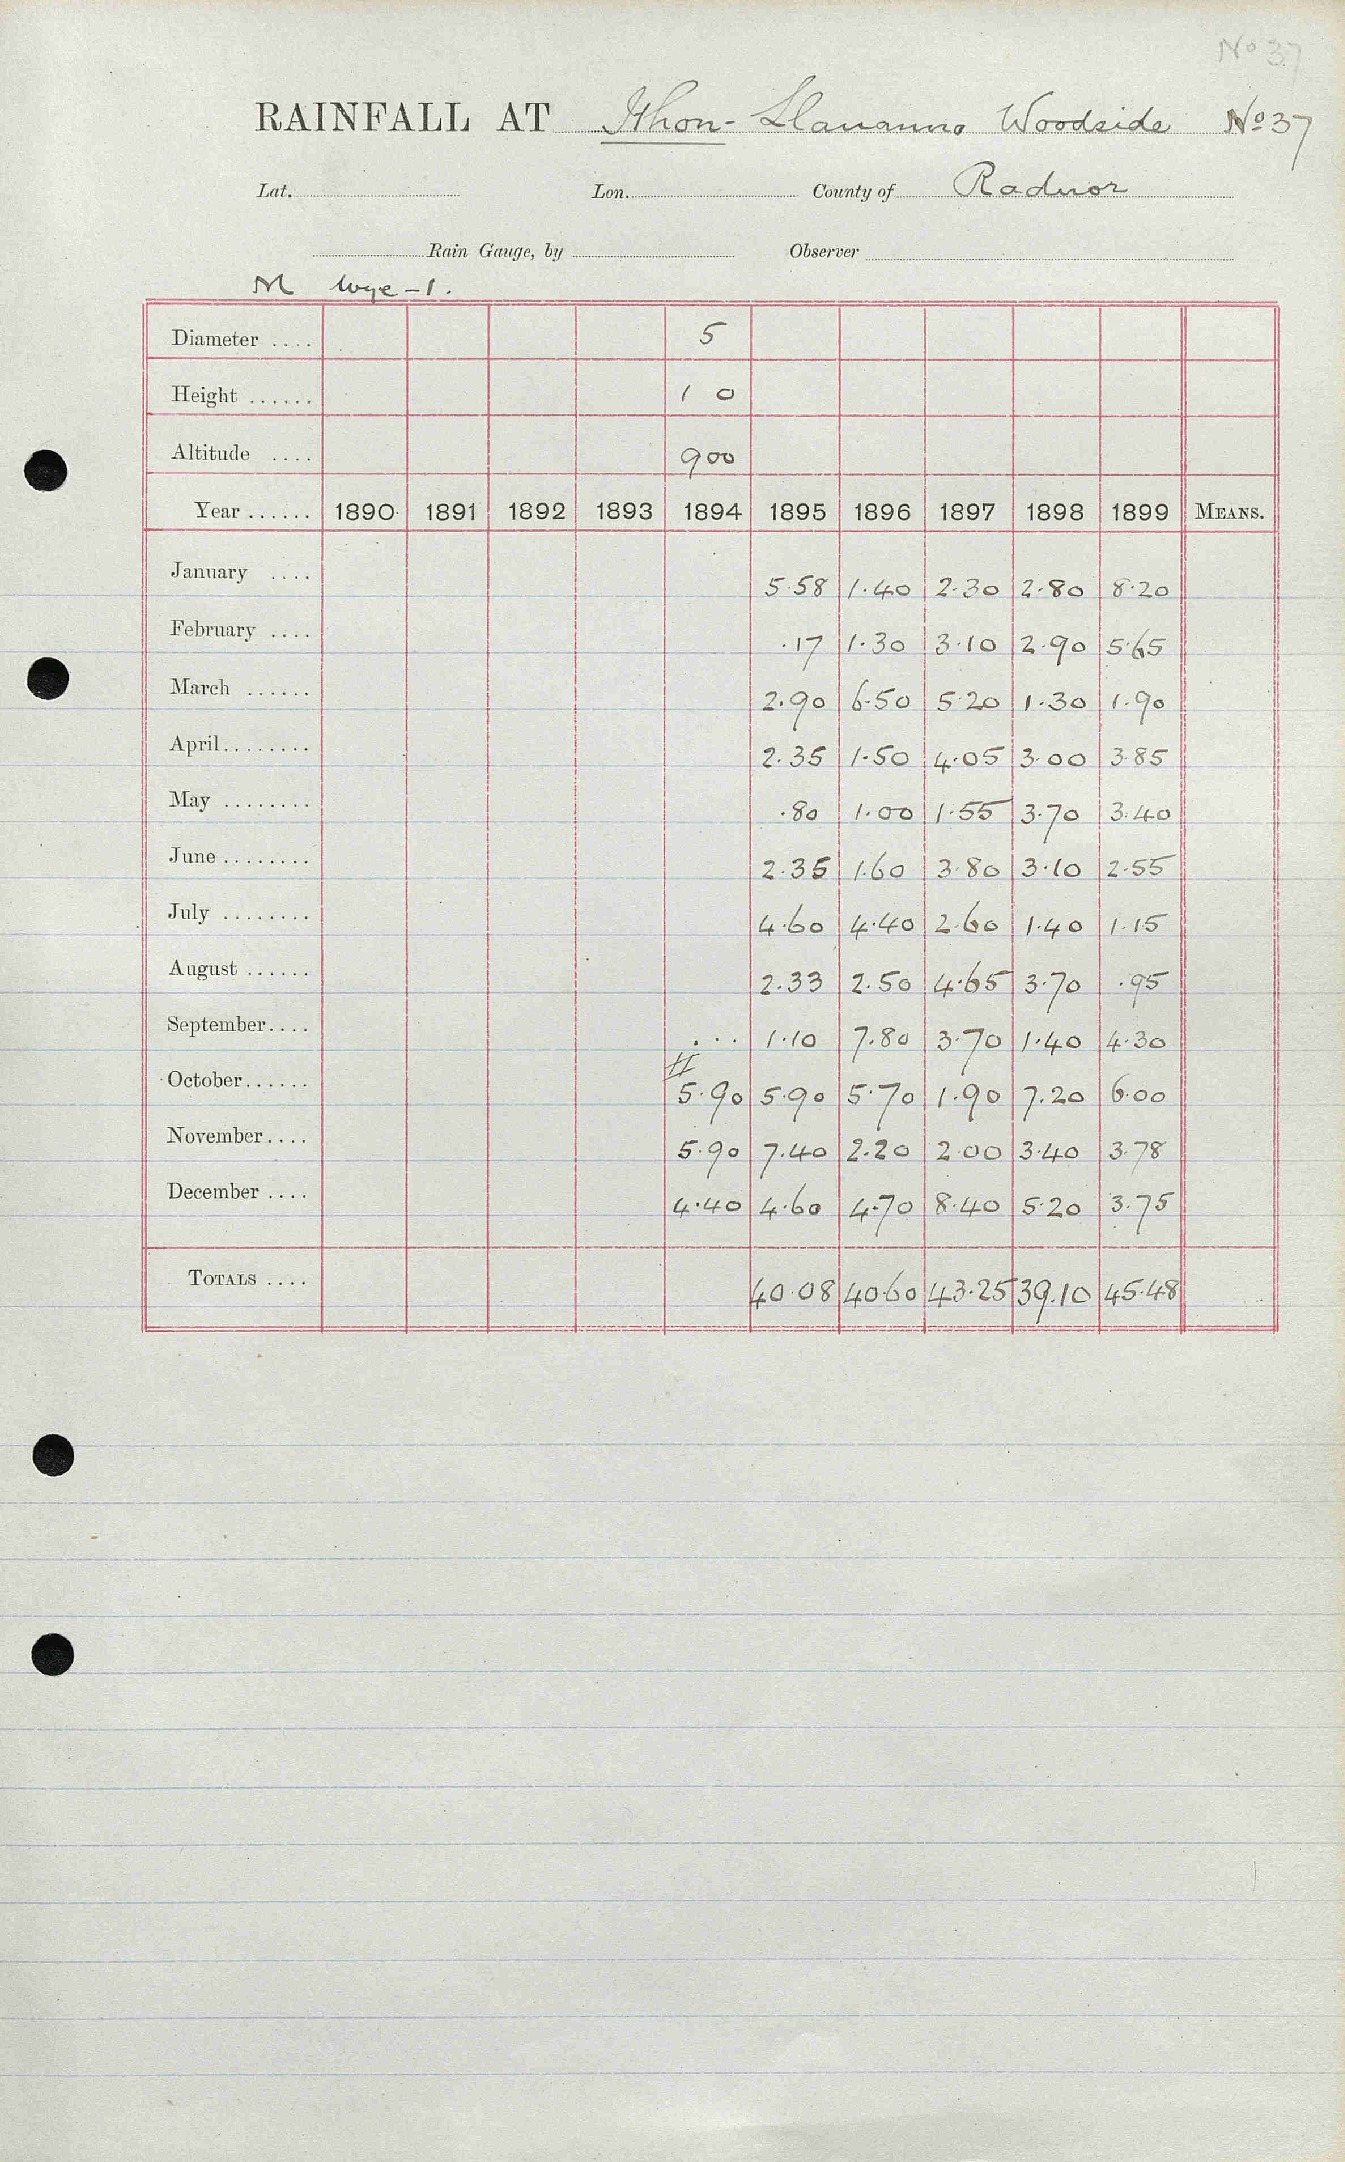 No 37
RAINFALL AT Ithon - Llananno Woodside No 37
Lat. Lon. County of Radnor
Rain Gauge, by Observer
M Wye - 1.
Diameter .... 5
Height ...... 1 0
Altitude .... 900
Year ...... 1890 1891 1892 1893 1894 1895 1896 1897 1898 1899 MEANS.
January .... 5.58 1.40 2.30 2.80 8.20
February .... .17 1.30 3.10 2.90 5.65
March ...... 2.90 6.50 5.20 1.30 1.90
April ........ 2.35 1.50 4.05 3.00 3.85
May ........ .80 1.00 1.55 3.70 3.40
June ........ 2.35 1.60 3.80 3.10 2.55
July ........ 4.60 4.40 2.60 1.40 1.15
August ...... 2.33 2.50 4.65 3.70 .95
September .... ... 1.10 7.80 3.70 1.40 4.30
October ...... # 5.90 5.90 5.70 1.90 7.20 6.00
November .... 5.90 7.40 2.20 2.00 3.40 3.78
December .... 4.40 4.60 4.70 8.40 5.20 3.75
TOTALS .... 40.08 40.60 43.25 39.10 45.48